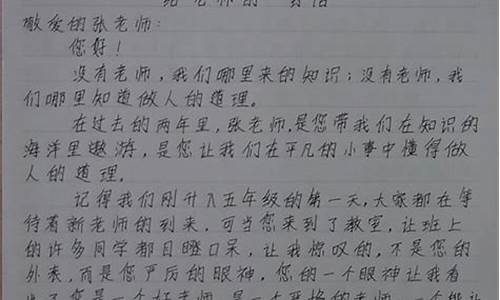 给老师的一封信
敬爱的张老师：
您好！
没有老师，我们哪里来的知识；没有老师，我
们哪里知道做人的道理。
在过去的两年里，张老师，是您带我们在知识的
海洋里遨游，是您让我们在平凡的小事中懂得做
人的道理。
记得我们刚升入五年级的第一天，大家都在等
待着新老师的到来，可当您来到了教室，让班上
的许多同学都目瞪口呆，让我惊叹的，不是您的
外表，而是您严厉的眼神，您的一个眼神让我看
出了您是一个好老师，是一个严格的老师，一个